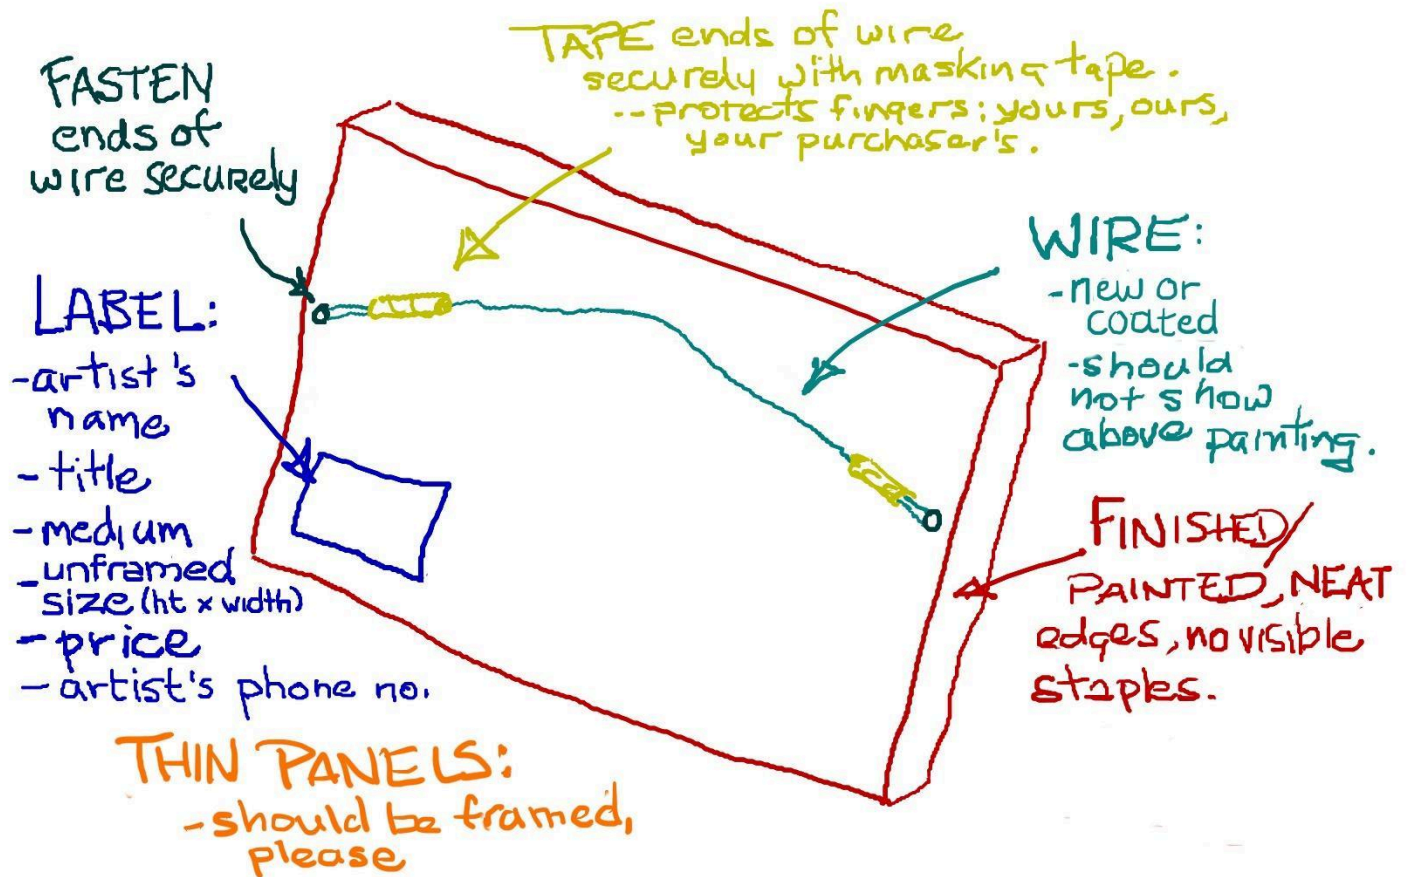 FASTEN
ends of
wire securely
TAPE ends of wire
securely with masking tape.
-- protects fingers: yours, ours,
your purchaser's.
WIRE:
- new or
coated
- should
not show
above painting.
LABEL:
- artist's
name
- title
- medium
- unframed
size (ht x width)
- price
- artist's phone no.
FINISHED/
PAINTED, NEAT
edges, no visible
staples.
THIN PANELS:
- should be framed,
please